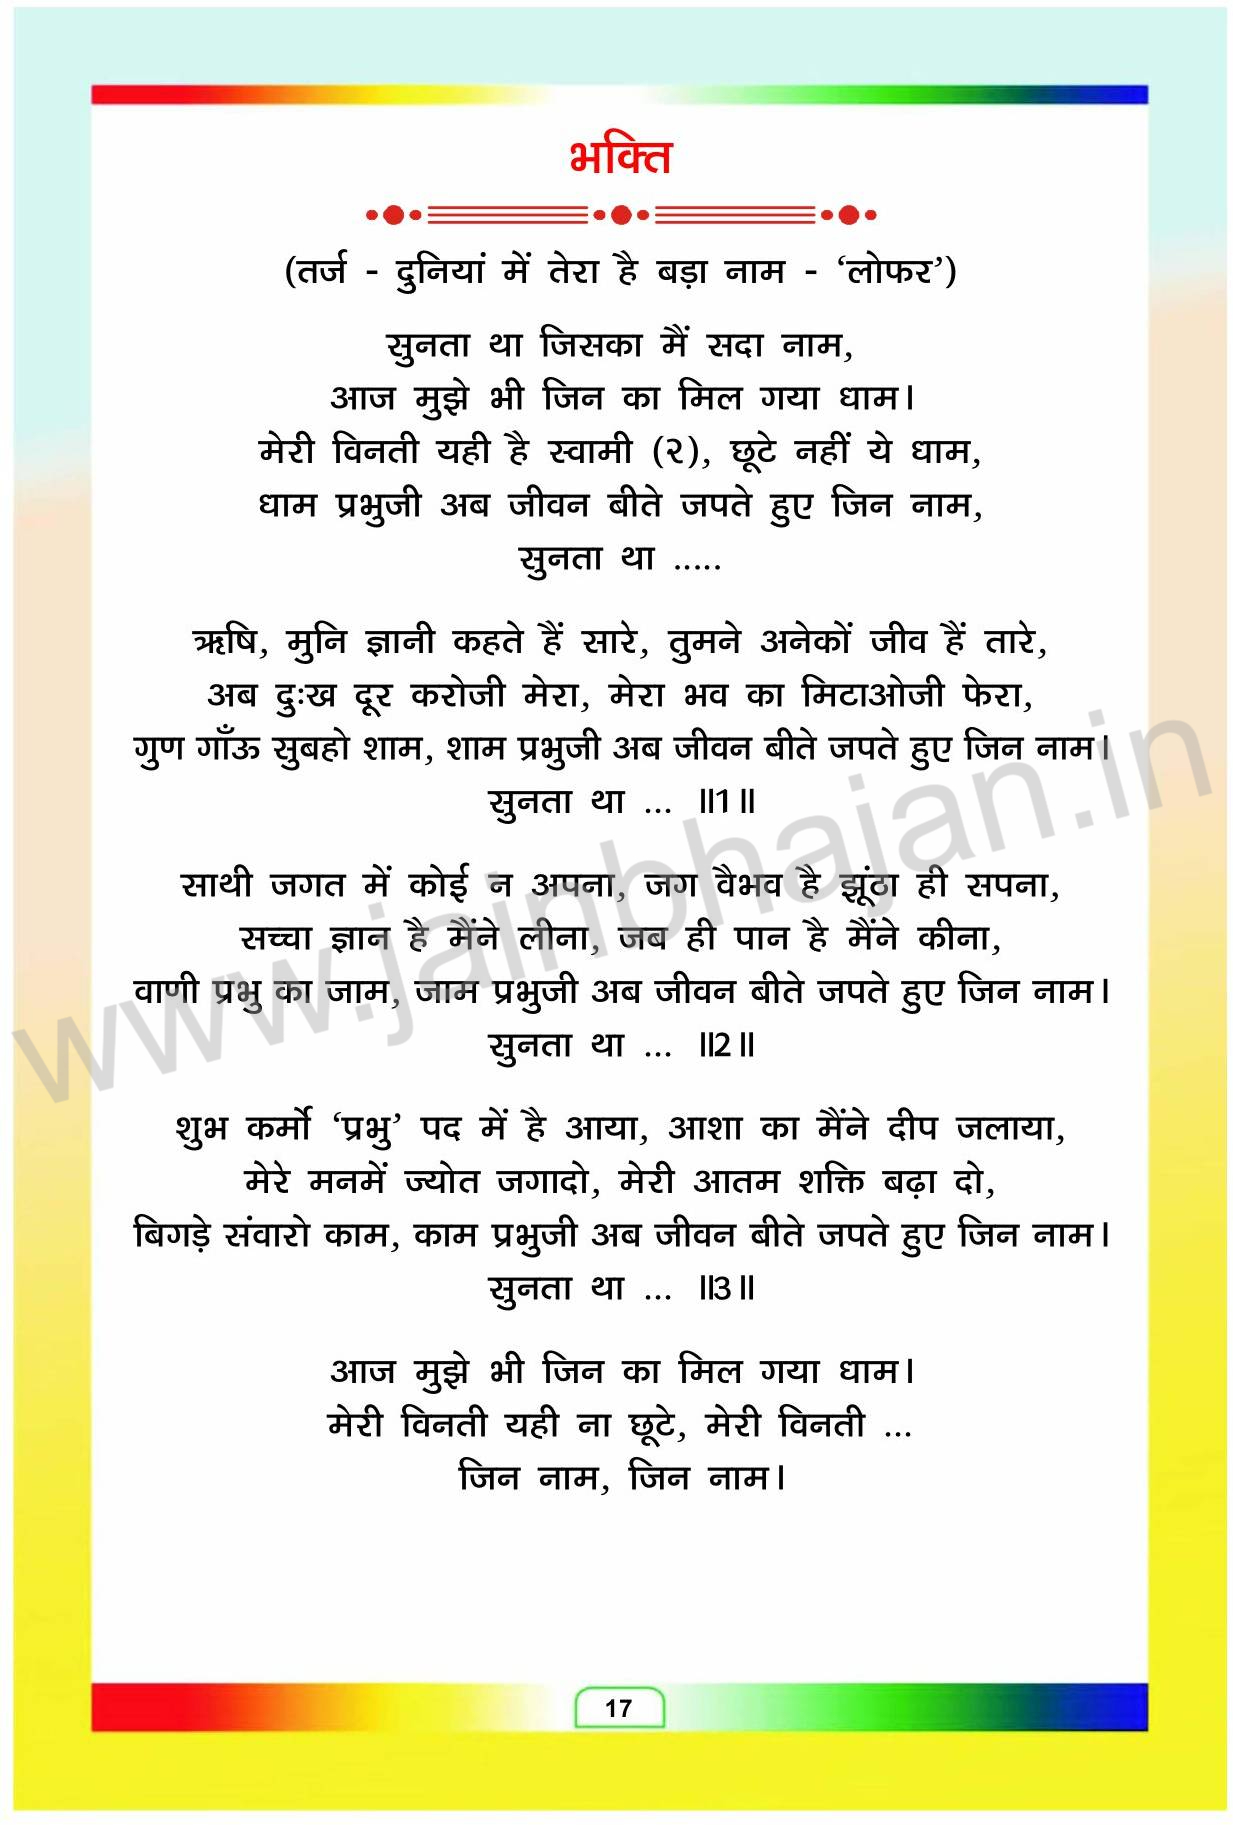 भक्ति
(तर्ज - दुनियां में तेरा है बड़ा नाम - ‘लोफर’)
सुनता था जिसका मैं सदा नाम,
आज मुझे भी जिन का मिल गया धाम।
मेरी विनती यही है स्वामी (२), छूटे नहीं ये धाम,
धाम प्रभुजी अब जीवन बीते जपते हुए जिन नाम,
सुनता था .....
ऋषि, मुनि ज्ञानी कहते हैं सारे, तुमने अनेकों जीव हैं तारे,
अब दुःख दूर करोजी मेरा, मेरा भव का मिटाओजी फेरा,
गुण गाँऊ सुबहो शाम, शाम प्रभुजी अब जीवन बीते जपते हुए जिन नाम।
सुनता था ... ॥1॥
साथी जगत में कोई न अपना, जग वैभव है झूंठा ही सपना,
सच्चा ज्ञान है मैंने लीना, जब ही पान है मैंने कीना,
वाणी प्रभु का जाम, जाम प्रभुजी अब जीवन बीते जपते हुए जिन नाम।
सुनता था ... ॥2॥
शुभ कर्मो ‘प्रभु’ पद में है आया, आशा का मैंने दीप जलाया,
मेरे मनमें ज्योत जगादो, मेरी आतम शक्ति बढ़ा दो,
बिगड़े संवारो काम, काम प्रभुजी अब जीवन बीते जपते हुए जिन नाम।
सुनता था ... ॥3॥
आज मुझे भी जिन का मिल गया धाम।
मेरी विनती यही ना छूटे, मेरी विनती ...
जिन नाम, जिन नाम।
17
www.jainbhajan.in